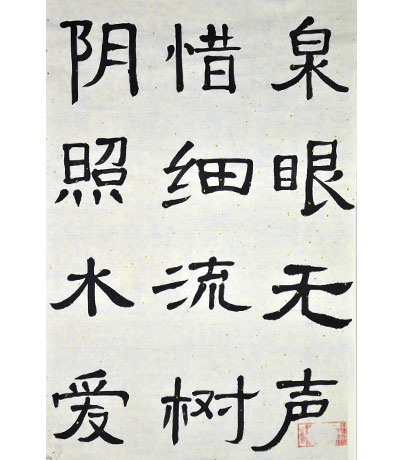 泉眼无声
惜细流树
阴照水爱